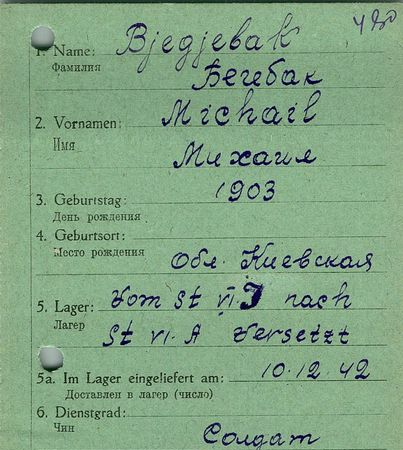 Bjedjebak
1. Name:
Фамилия
Бегебак
Michail
2. Vornamen:
Имя
Михаил
1903
3. Geburtstag:
День рождения
4. Geburtsort:
Место рождения
Обл. Киевская
5. Lager: Vom St VI. J nach
Лагер St VI. A Versetzt
5a. Im Lager eingeliefert am: 10.12.42
Доставлен в лагер (число)
6. Dienstgrad:
Чин
Солдат